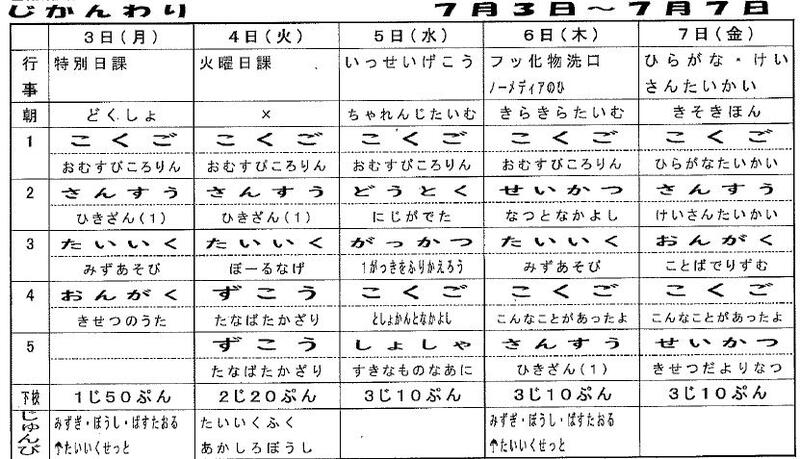 じかんわり 7月3日～7月7日
3日(月) 4日(火) 5日(水) 6日(木) 7日(金)
行事 特別日課 火曜日課 いっせいげこう フッ化物洗口 ひらがな・けい
ノーメディアのひ さんたいかい
朝 どくしょ × ちゃれんじたいむ きらきらたいむ きそきほん
1 こくご こくご こくご こくご こくご
おむすびころりん おむすびころりん おむすびころりん おむすびころりん ひらがなたいかい
2 さんすう さんすう どうとく せいかつ さんすう
ひきざん(1) ひきざん(1) にじがでた なつとなかよし けいさんたいかい
3 たいいく たいいく がっかつ たいいく おんがく
みずあそび ぼーるなげ 1がっきをふりかえろう みずあそび ことばでりずむ
4 おんがく ずこう こくご こくご こくご
きせつのうた たなばたかざり としょかんとなかよし こんなことがあったよ こんなことがあったよ
5 ずこう しょしゃ さんすう せいかつ
たなばたかざり すきなものなあに ひきざん(1) きせつだよりなつ
下校 1じ50ぷん 2じ20ぷん 3じ10ぷん 3じ10ぷん 3じ10ぷん
じゅんび みずぎ・ぼうし・ばすたおる たいいくふく みずぎ・ぼうし・ばすたおる
↑たいいくせっと あかしろぼうし ↑たいいくせっと